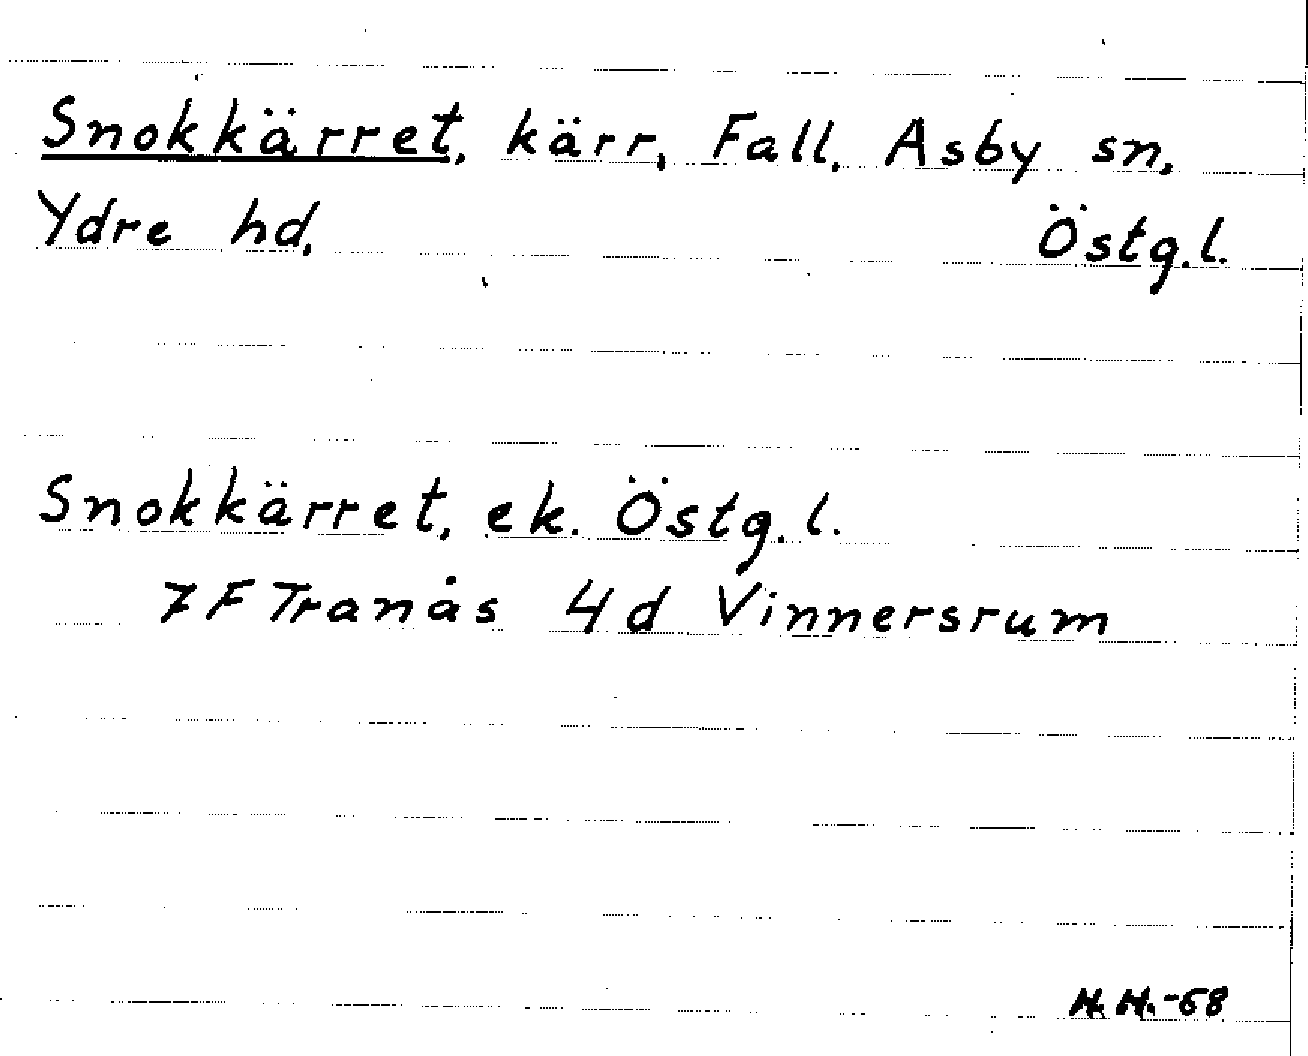 Snokkärret, kärr, Fall, Asby sn,
Ydre hd. Östg.l.
Snokkärret, ek. Östg.l.
7F Tranås 4d Vinnersrum
-68